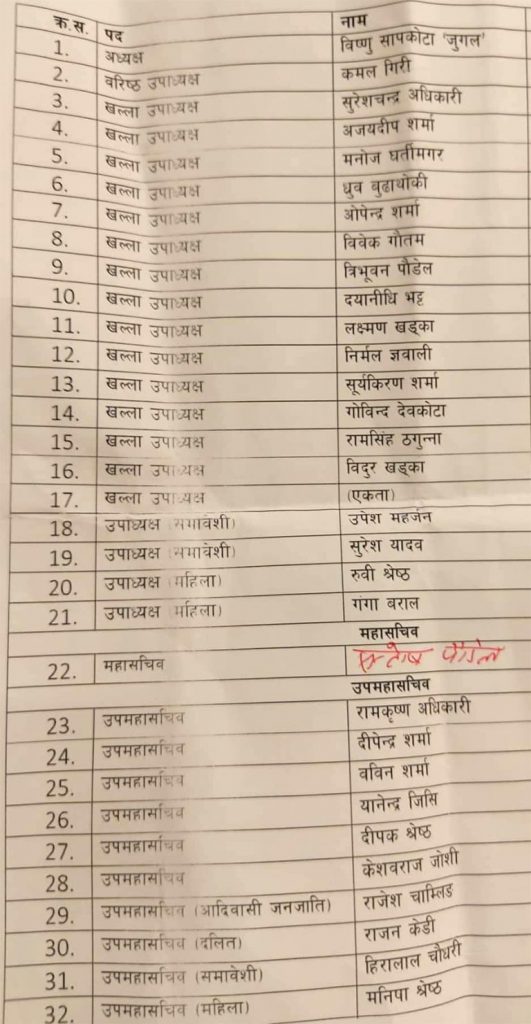 क्र.स. पद नाम
1. अध्यक्ष विष्णु सापकोटा 'जुगल'
2. वरिष्ठ उपाध्यक्ष कमल गिरी
3. खुल्ला उपाध्यक्ष सुरेशचन्द्र अधिकारी
4. खुल्ला उपाध्यक्ष अजयदीप शर्मा
5. खुल्ला उपाध्यक्ष मनोज घर्तीमगर
6. खुल्ला उपाध्यक्ष धुव बुढाथोकी
7. खुल्ला उपाध्यक्ष ओपेन्द्र शर्मा
8. खुल्ला उपाध्यक्ष विवेक गौतम
9. खुल्ला उपाध्यक्ष त्रिभूवन पौडेल
10. खुल्ला उपाध्यक्ष दयानीधि भट्ट
11. खुल्ला उपाध्यक्ष लक्ष्मण खड्का
12. खुल्ला उपाध्यक्ष निर्मल ज्ञवाली
13. खुल्ला उपाध्यक्ष सूर्यकिरण शर्मा
14. खुल्ला उपाध्यक्ष गोविन्द देवकोटा
15. खुल्ला उपाध्यक्ष रामसिंह ठगुन्ना
16. खुल्ला उपाध्यक्ष विदुर खड्का
17. खुल्ला उपाध्यक्ष (एकता)
18. उपाध्यक्ष (समावेशी) उपेश महर्जन
19. उपाध्यक्ष (समावेशी) सुरेश यादव
20. उपाध्यक्ष (महिला) रुवी श्रेष्ठ
21. उपाध्यक्ष (महिला) गंगा बराल
महासचिव
22. महासचिव पौडेल
उपमहासचिव
23. उपमहासचिव रामकृष्ण अधिकारी
24. उपमहासचिव दीपेन्द्र शर्मा
25. उपमहासचिव वविन शर्मा
26. उपमहासचिव यानेन्द्र जिसि
27. उपमहासचिव दीपक श्रेष्ठ
28. उपमहासचिव केशवराज जोशी
29. उपमहासचिव (आदिवासी जनजाति) राजेश चाम्लिङ
30. उपमहासचिव (दलित) राजन केडी
31. उपमहासचिव (समावेशी) हिरालाल चौधरी
32. उपमहासचिव (महिला) मनिषा श्रेष्ठ